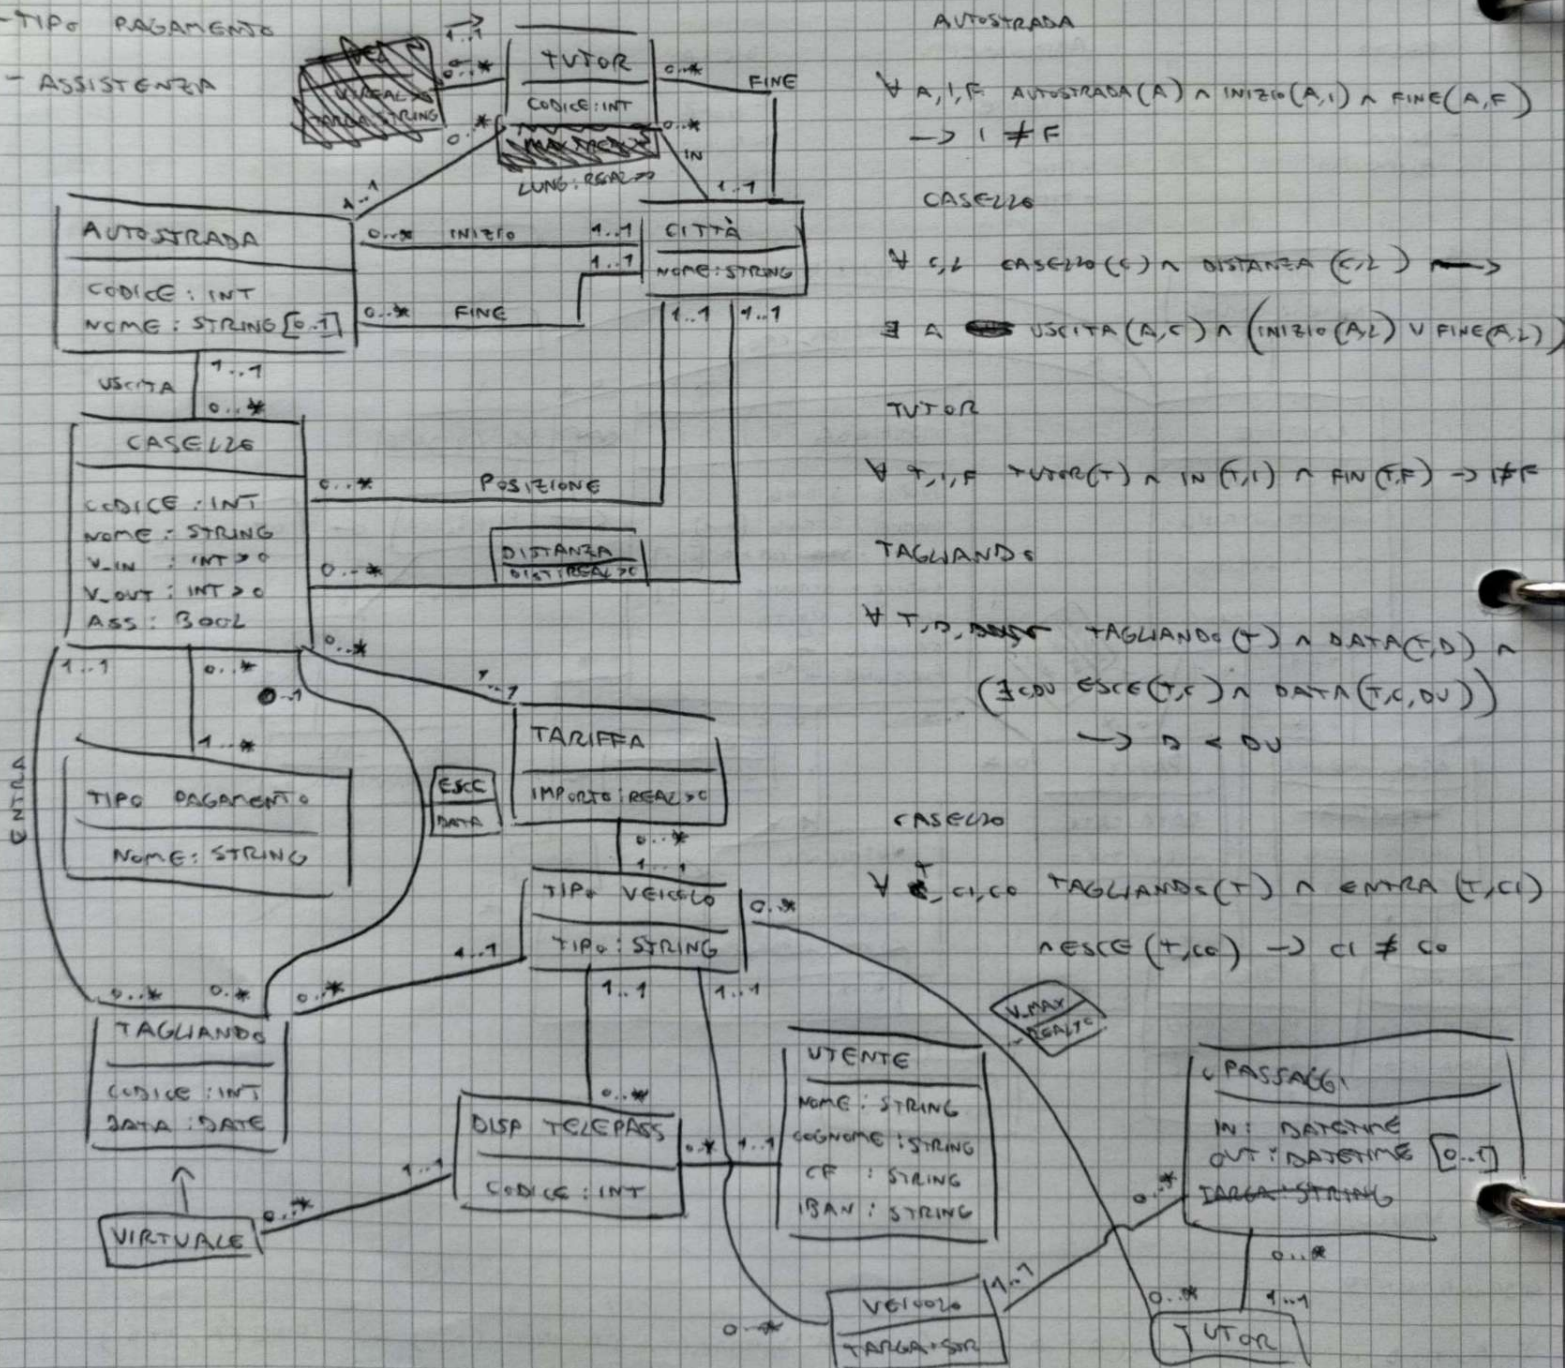 - TIPO PAGAMENTO
- ASSISTENZA
1..1
0..*
TARGA: STRING
TUTOR
CODICE: INT
LUNG: REAL>0
0..*
FINE
0..*
IN
1..1
0..*
1..1
AUTOSTRADA
CODICE : INT
NOME : STRING [0..1]
0..* INIZIO 1..1
0..* FINE 1..1
CITTÀ
NOME: STRING
1..1
1..1
USCITA
1..1
0..*
CASELLO
CODICE : INT
NOME : STRING
V_IN : INT > 0
V_OUT : INT > 0
ASS : BOOL
0..* POSIZIONE
0..*
DISTANZA
DIST: REAL>0
1..1
0..*
0..1
0..*
1..1
1..*
ENTRA
TIPO PAGAMENTO
NOME: STRING
ESCE
DATA
TARIFFA
IMPORTO: REAL>0
0..*
1..1
TIPO VEICOLO
TIPO : STRING
0..*
1..1
0..* 0..* 0..*
1..1 1..1
TAGLIANDO
CODICE : INT
DATA : DATE
VIRTUALE
0..*
1..1
0..*
DISP TELEPASS
CODICE : INT
0..* 1..1
UTENTE
NOME : STRING
COGNOME : STRING
CF : STRING
IBAN : STRING
V_MAX
REAL>0
PASSAGGI
IN : DATETIME
OUT : DATETIME [0..1]
TARGA : STRING
0..*
0..*
1..1
1..1
0..*
VEICOLO
TARGA: STR
0..*
TUTOR
AUTOSTRADA
∀ A,I,F AUTOSTRADA(A) ∧ INIZIO(A,I) ∧ FINE(A,F)
→ I ≠ F
CASELLO
∀ C,L CASELLO(C) ∧ DISTANZA (C,L) →
∃ A USCITA(A,C) ∧ (INIZIO(A,L) ∨ FINE(A,L))
TUTOR
∀ T,I,F TUTOR(T) ∧ IN(T,I) ∧ FIN(T,F) → I≠F
TAGLIANDO
∀ T,D, TAGLIANDO(T) ∧ DATA(T,D) ∧
(∃ C,DU ESCE(T,C) ∧ DATA(T,C,DU))
→ D < DU
CASELLO
∀ T, CI,CO TAGLIANDO(T) ∧ ENTRA (T,CI)
∧ ESCE (T,CO) → CI ≠ CO